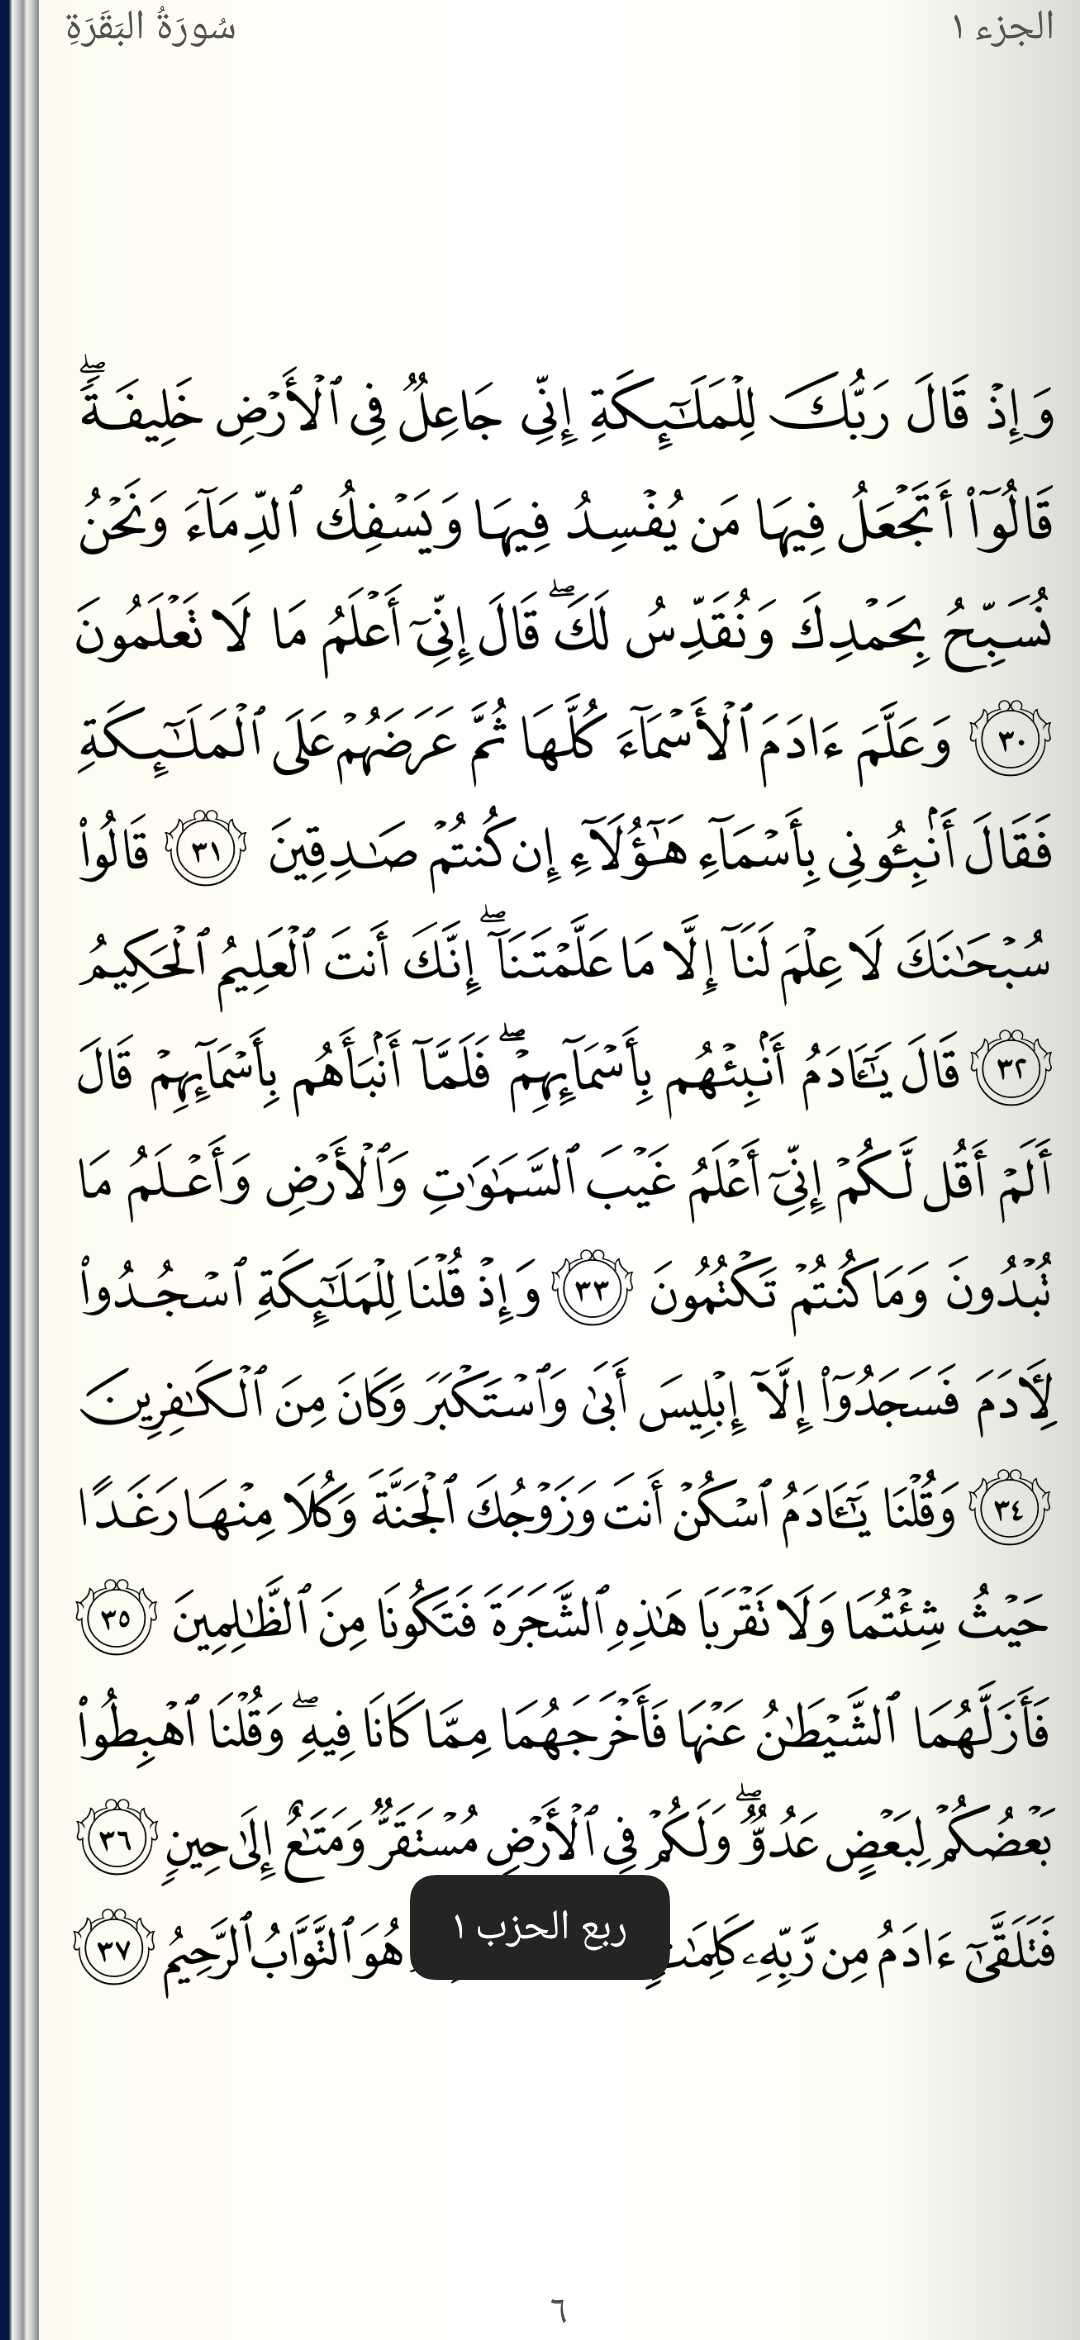 الجزء ١
سُورَةُ البَقَرَةِ
وَإِذۡ قَالَ رَبُّكَ لِلۡمَلَٰٓئِكَةِ إِنِّي جَاعِلٞ فِي ٱلۡأَرۡضِ خَلِيفَةٗۖ
قَالُوٓاْ أَتَجۡعَلُ فِيهَا مَن يُفۡسِدُ فِيهَا وَيَسۡفِكُ ٱلدِّمَآءَ وَنَحۡنُ
نُسَبِّحُ بِحَمۡدِكَ وَنُقَدِّسُ لَكَۖ قَالَ إِنِّيٓ أَعۡلَمُ مَا لَا تَعۡلَمُونَ
٣٠ وَعَلَّمَ ءَادَمَ ٱلۡأَسۡمَآءَ كُلَّهَا ثُمَّ عَرَضَهُمۡ عَلَى ٱلۡمَلَٰٓئِكَةِ
فَقَالَ أَنۢبِـُٔونِي بِأَسۡمَآءِ هَٰٓؤُلَآءِ إِن كُنتُمۡ صَٰدِقِينَ ٣١ قَالُواْ
سُبۡحَٰنَكَ لَا عِلۡمَ لَنَآ إِلَّا مَا عَلَّمۡتَنَآۖ إِنَّكَ أَنتَ ٱلۡعَلِيمُ ٱلۡحَكِيمُ
٣٢ قَالَ يَٰٓـَٔادَمُ أَنۢبِئۡهُم بِأَسۡمَآئِهِمۡۖ فَلَمَّآ أَنۢبَأَهُم بِأَسۡمَآئِهِمۡ قَالَ
أَلَمۡ أَقُل لَّكُمۡ إِنِّيٓ أَعۡلَمُ غَيۡبَ ٱلسَّمَٰوَٰتِ وَٱلۡأَرۡضِ وَأَعۡلَمُ مَا
تُبۡدُونَ وَمَا كُنتُمۡ تَكۡتُمُونَ ٣٣ وَإِذۡ قُلۡنَا لِلۡمَلَٰٓئِكَةِ ٱسۡجُدُواْ
لِأٓدَمَ فَسَجَدُوٓاْ إِلَّآ إِبۡلِيسَ أَبَىٰ وَٱسۡتَكۡبَرَ وَكَانَ مِنَ ٱلۡكَٰفِرِينَ
٣٤ وَقُلۡنَا يَٰٓـَٔادَمُ ٱسۡكُنۡ أَنتَ وَزَوۡجُكَ ٱلۡجَنَّةَ وَكُلَا مِنۡهَا رَغَدًا
حَيۡثُ شِئۡتُمَا وَلَا تَقۡرَبَا هَٰذِهِ ٱلشَّجَرَةَ فَتَكُونَا مِنَ ٱلظَّٰلِمِينَ ٣٥
فَأَزَلَّهُمَا ٱلشَّيۡطَٰنُ عَنۡهَا فَأَخۡرَجَهُمَا مِمَّا كَانَا فِيهِۖ وَقُلۡنَا ٱهۡبِطُواْ
بَعۡضُكُمۡ لِبَعۡضٍ عَدُوّٞۖ وَلَكُمۡ فِي ٱلۡأَرۡضِ مُسۡتَقَرّٞ وَمَتَٰعٌ إِلَىٰ حِينٖ ٣٦
فَتَلَقَّىٰٓ ءَادَمُ مِن رَّبِّهِۦ كَلِمَٰتٖ هُوَ ٱلتَّوَّابُ ٱلرَّحِيمُ ٣٧
ربع الحزب ١
٦